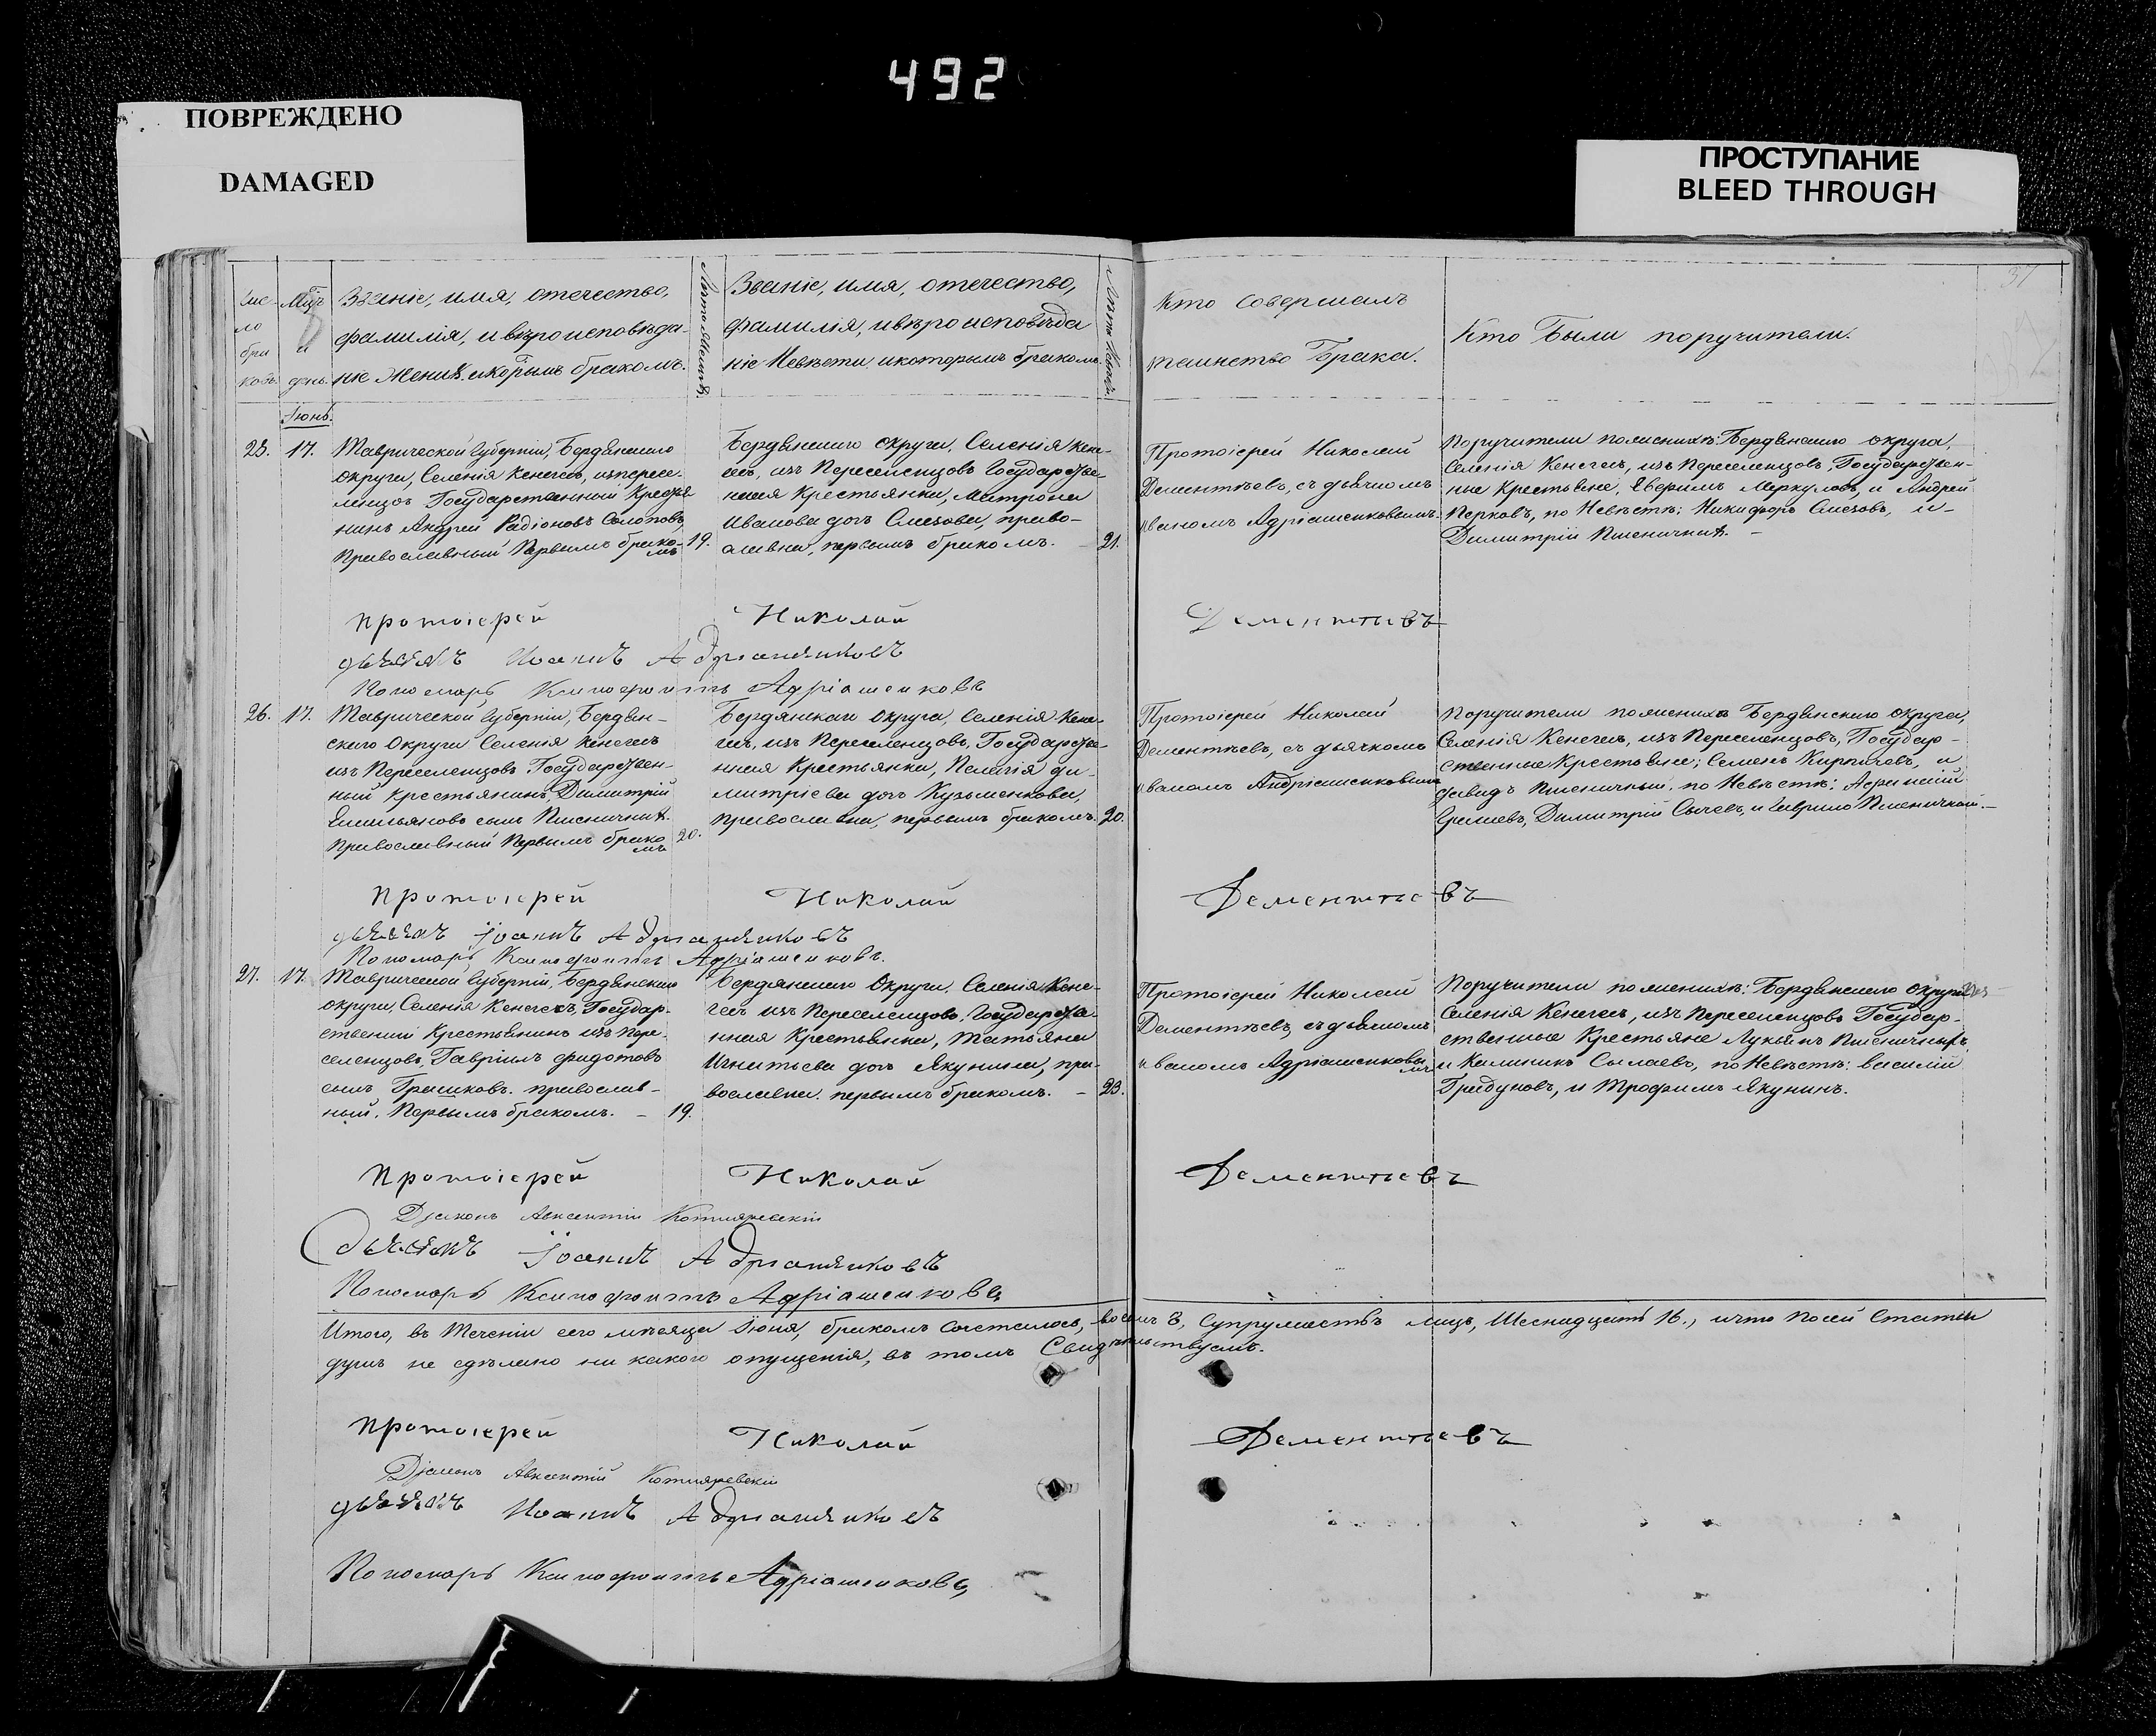 492
ПОВРЕЖДЕНО
DAMAGED
ПРОСТУПАНИЕ
BLEED THROUGH
37
Чис-
ло
бра
ковъ.
Мцъ
и
день.
Званіе, имя, отечество,
фамилія, и вѣроисповѣда-
ніе Жених. и которымъ бракомъ.
Лѣто Жениха
Званіе, имя, отечество,
фамилія, и вѣроисповѣда
ніе Невѣсты и которымъ бракомъ.
Лѣто Невѣсты
Кто совершалъ
таинство Брака.
Кто Были поручители.
Іюнь.
25.
17.
Таврической Губерніи, Бердянскаго
округа, Селенія Кенегесъ, изъ пересе-
ленцовъ Государственный Крестья
нинъ Андрей Радіоновъ Солоповъ,
Православный Первымъ брако-
мъ
19.
Бердянскаго округа, Селенія Кене-
гесъ, изъ Переселенцовъ Государстве-
нная Крестьянка, Матрона
Иванова дочь Слезова, право-
славна, первымъ бракомъ. –
21.
Протоіерей Николай
Дементьевъ, съ дьячкомъ
иваномъ Адріашенковымъ.
Поручители по женихѣ: Бердянскаго округа,
Селенія Кенегесъ, изъ Переселенцовъ, Государствен-
ные Крестьяне, Ефримъ Меркуловъ, и Андрей
Перковъ, по Невѣстѣ: Никифоръ Слезовъ, и –
Димитрій Пшеничный. –
протоіерей Николай Дементьевъ
дьячокъ Иоаннъ Адріашенковъ
Пономарь Ксенофонтъ Адріашенковъ
26.
17.
Таврической Губерніи, Бердян-
скаго Округа Селенія Кенегесъ
изъ Переселенцовъ Государствен-
ный крестьянинъ, Димитрій
Емильяновъ сынъ Пшеничный.
Православный Первымъ брако
мъ
20.
Бердянскаго Округа, Селенія Кене-
гесъ, изъ Переселенцовъ, Государстве-
нная Крестьянка, Пелагія ди-
митріева дочь Кузьменкова,
православна, первымъ бракомъ.
20.
Протоіерей Николай
Дементьевъ, съ дьячкомъ
иваномъ Андріашенковымъ
Поручители по женихѣ Бердянскаго округа,
Селенія Кенегесъ, изъ Переселенцовъ, Государ-
ственные Крестьяне; Семенъ Кирпичевъ, и
Давидъ Пшеничный, по Невѣстѣ:
Димитрій Сычевъ, и Гаврило Пшеничной. –
протоіерей Николай Дементьевъ
дьячокъ Іоаннъ Адріашенковъ
Пономарь Ксенофонтъ Адріашенковъ.
27.
17.
Таврической Губерніи, Бердянскаго
округа, Селенія Кенегесъ, Государ-
ственный Крестьянинъ изъ Пере-
селенцовъ, Гавріилъ Федотовъ
сынъ Грешковъ. православ-
ный, Первымъ бракомъ. –
19.
Бердянскаго Округа, Селенія Кене-
гесъ изъ Переселенцовъ, Государстве-
нная Крестьянка, Татьяна
Игнатьева дочь Якунина, пра-
вославна, первымъ бракомъ. –
23.
Протоіерей Николай
Дементьевъ, съ дьячкомъ
иваномъ Адріашенковы
мъ
Поручители по женихѣ: Бердянскаго округа
Селенія Кенегесъ, изъ Переселенцовъ Государ-
ственные Крестьяне Лукьянъ Пшеничный,
и Калиникъ Сылаевъ, по Невѣстѣ: василій
Гребуновъ, и Трофимъ Якунинъ.
протоіерей Николай Дементьевъ
Діаконъ Авксентій Котляревскій
дьячокъ Іоаннъ Адріашенковъ
Пономарь Ксенофонтъ Адріашенковъ
Итого, въ Теченіи сего мѣсяца Іюня, бракомъ сочеталось, восемь 8, супружествъ лицъ, Шеснадцать 16., и что по сей статьи
душъ не сдѣлано ни какого опущенія, въ томъ Свидѣтельствуемъ.
протоіерей Николай Дементьевъ
Діаконъ Авксентій Котляревскій
дьячокъ Иоаннъ Адріашенковъ
Пономарь Ксенофонтъ Адріашенковъ